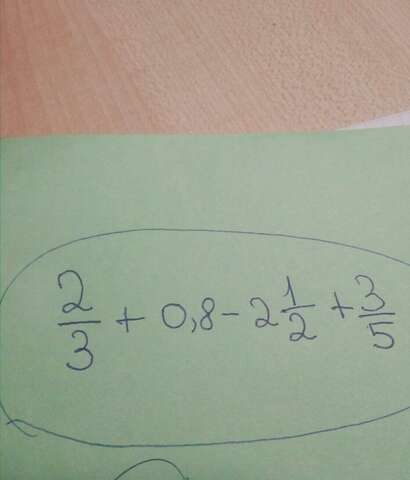 2/3 + 0,8 - 2 1/2 + 3/5